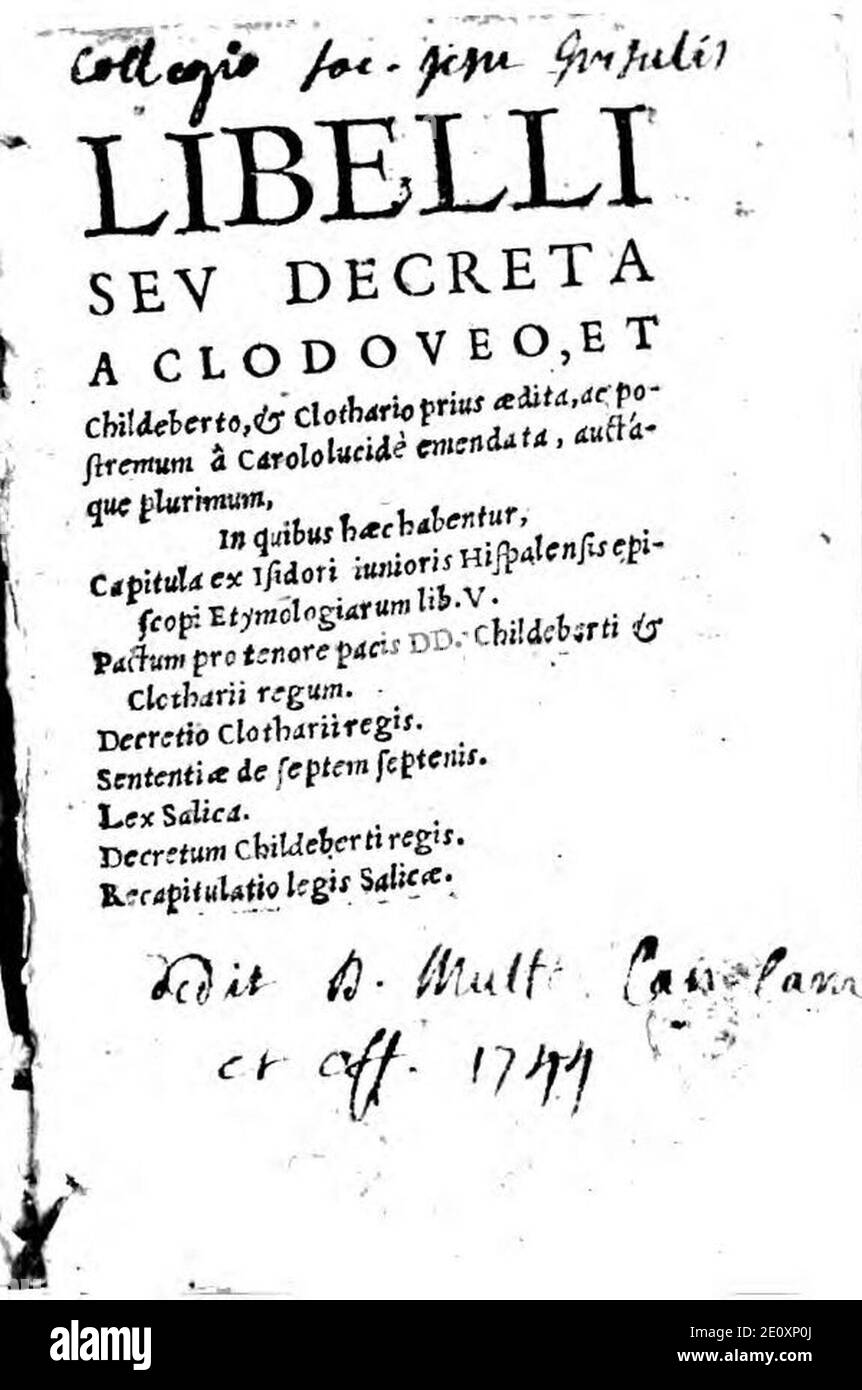 Collegio soc. Jesu
LIBELLI
SEV DECRETA
A CLODOVEO, ET
Childeberto, & Clothario prius ædita, ac po-
ſtremum â Carolo lucidè emendata, auctá-
que plurimum,
In quibus hæc habentur,
Capitula ex Iſidori iunioris Hiſpalenſis epi-
ſcopi Etymologiarum lib. V.
Pactum pro tenore pacis DD. Childeberti &
Clotharii regum.
Decretio Clotharii regis.
Sententiæ de ſeptem ſeptenis.
Lex Salica.
Decretum Childeberti regis.
Recapitulatio legis Salicæ.
dedit D. Mult.
et aff. 1744
alamy
Image ID: 2E0XP0J
www.alamy.com